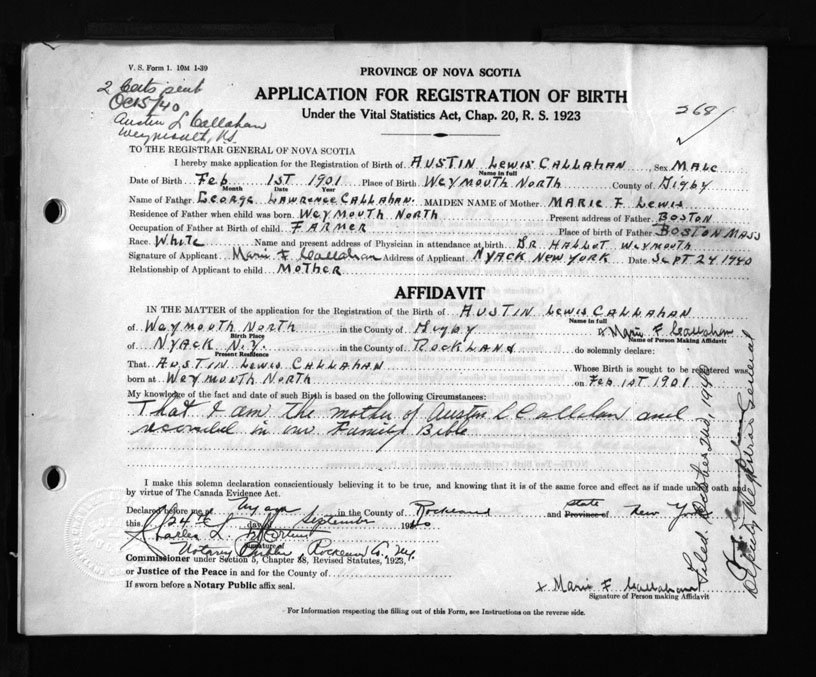 V. S. Form 1. 10M 1-39
2 Certs sent
Oct 5/40
Austin L Callahan
Weymouth, N.S.
PROVINCE OF NOVA SCOTIA
APPLICATION FOR REGISTRATION OF BIRTH
Under the Vital Statistics Act, Chap. 20, R. S. 1923
268
TO THE REGISTRAR GENERAL OF NOVA SCOTIA
I hereby make application for the Registration of Birth of AUSTIN LEWIS CALLAHAN Sex MALE
Name in full
Date of Birth Feb 1ST 1901 Place of Birth WEYMOUTH NORTH County of Digby
Month Date Year
Name of Father GEORGE LAWRENCE CALLAHAN. MAIDEN NAME of Mother MARIE F LEWIS
Residence of Father when child was born WEYMOUTH NORTH Present address of Father BOSTON
Occupation of Father at Birth of child FARMER Place of birth of Father BOSTON MASS
Race. White Name and present address of Physician in attendance at birth DR HALLOT WEYMOUTH
Signature of Applicant Marie F Callahan Address of Applicant NYACK NEW YORK Date Sept 24 1940
Relationship of Applicant to child MOTHER
AFFIDAVIT
IN THE MATTER of the application for the Registration of the Birth of AUSTIN LEWIS CALLAHAN
Name in full
of WEYMOUTH NORTH in the County of Digby x Marie F. Callahan
Birth Place Name of Person Making Affidavit
of NYACK N.Y. in the County of ROCKLAND do solemnly declare:
Present Residence
That AUSTIN LEWIS CALLAHAN Whose Birth is sought to be registered was
born at WEYMOUTH NORTH on FEB 1ST 1901
My knowledge of the fact and date of such Birth is based on the following Circumstances:
That I am the mother of Austin L Callahan and
recorded in our Family Bible
I make this solemn declaration conscientiously believing it to be true, and knowing that it is of the same force and effect as if made under oath and
by virtue of The Canada Evidence Act.
Declared before me at Nyack in the County of Rockland and Province of state New York
this 24th day of September 1940
Charles L.
Signature of
Notary Public, Rockland Co. N.Y.
Commissioner under Section 5, Chapter 38, Revised Statutes, 1923,
or Justice of the Peace in and for the County of
If sworn before a Notary Public affix seal.
x Marie F Callahan
Signature of Person making Affidavit
For Information respecting the filling out of this Form, see Instructions on the reverse side.
Filed October 2nd, 1940
Deputy Registrar General